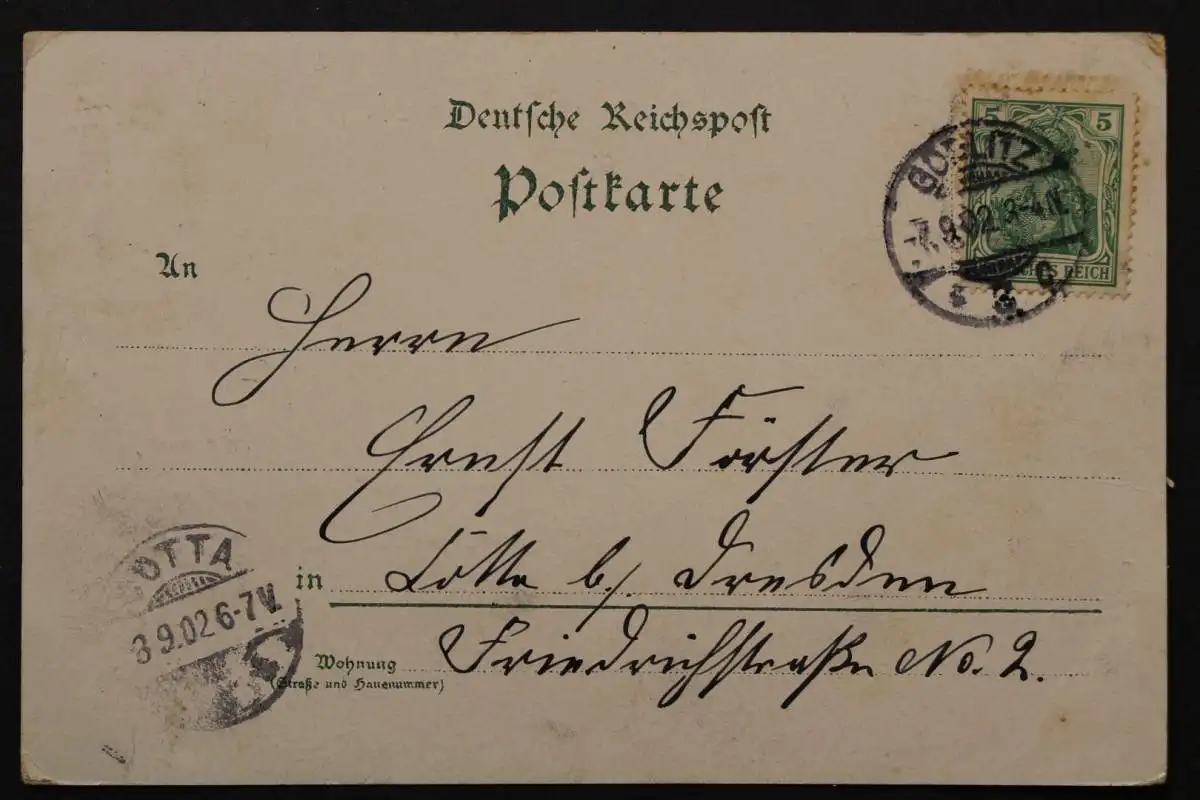 Deutsche Reichspost
Postkarte
5 5
GÖRLITZ
7.9.02. 3-4 N.
REICH
An
Herrn
Ernst Förster
in Cotta b/. Dresden
Wohnung Friedrichstraße No. 2.
(Straße und Hausnummer)
COTTA
8 9.02 6-7 V.